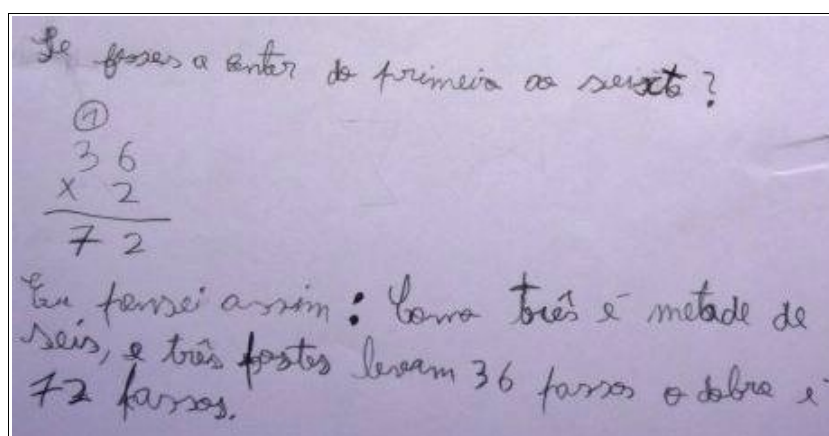 Se fosses a contar do primeiro ao sexto?
①
36
x 2
72
Eu pensei assim: Como três é metade de
seis, e três postes levam 36 passos o dobro é
72 passos.